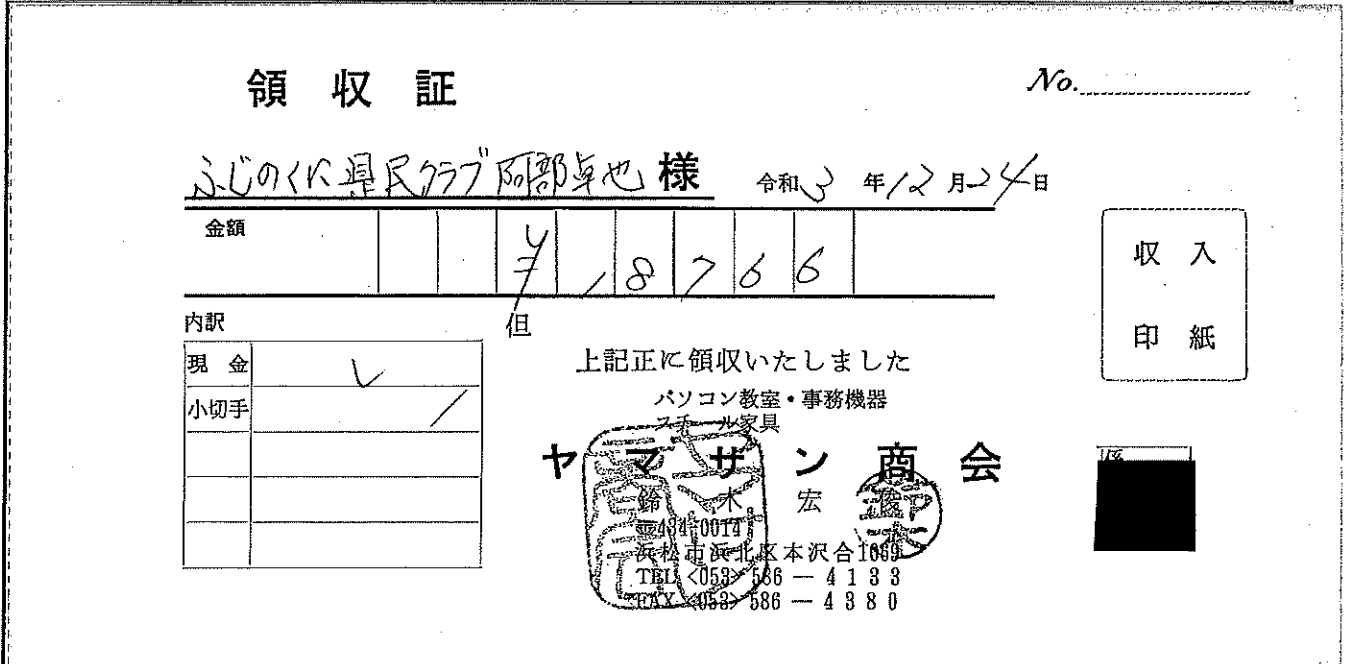 領収証
No.
ふじのくに県民クラブ阿部卓也 様 令和3年12月24日
金額 ¥18766
内訳
但
現金 レ
小切手
上記正に領収いたしました
パソコン教室・事務機器
スチール家具
ヤマサン商会
鈴木宏
〒434-0014
浜松市浜北区本沢合1089
TEL<053>586-4133
FAX<053>586-4380
収入
印紙
係